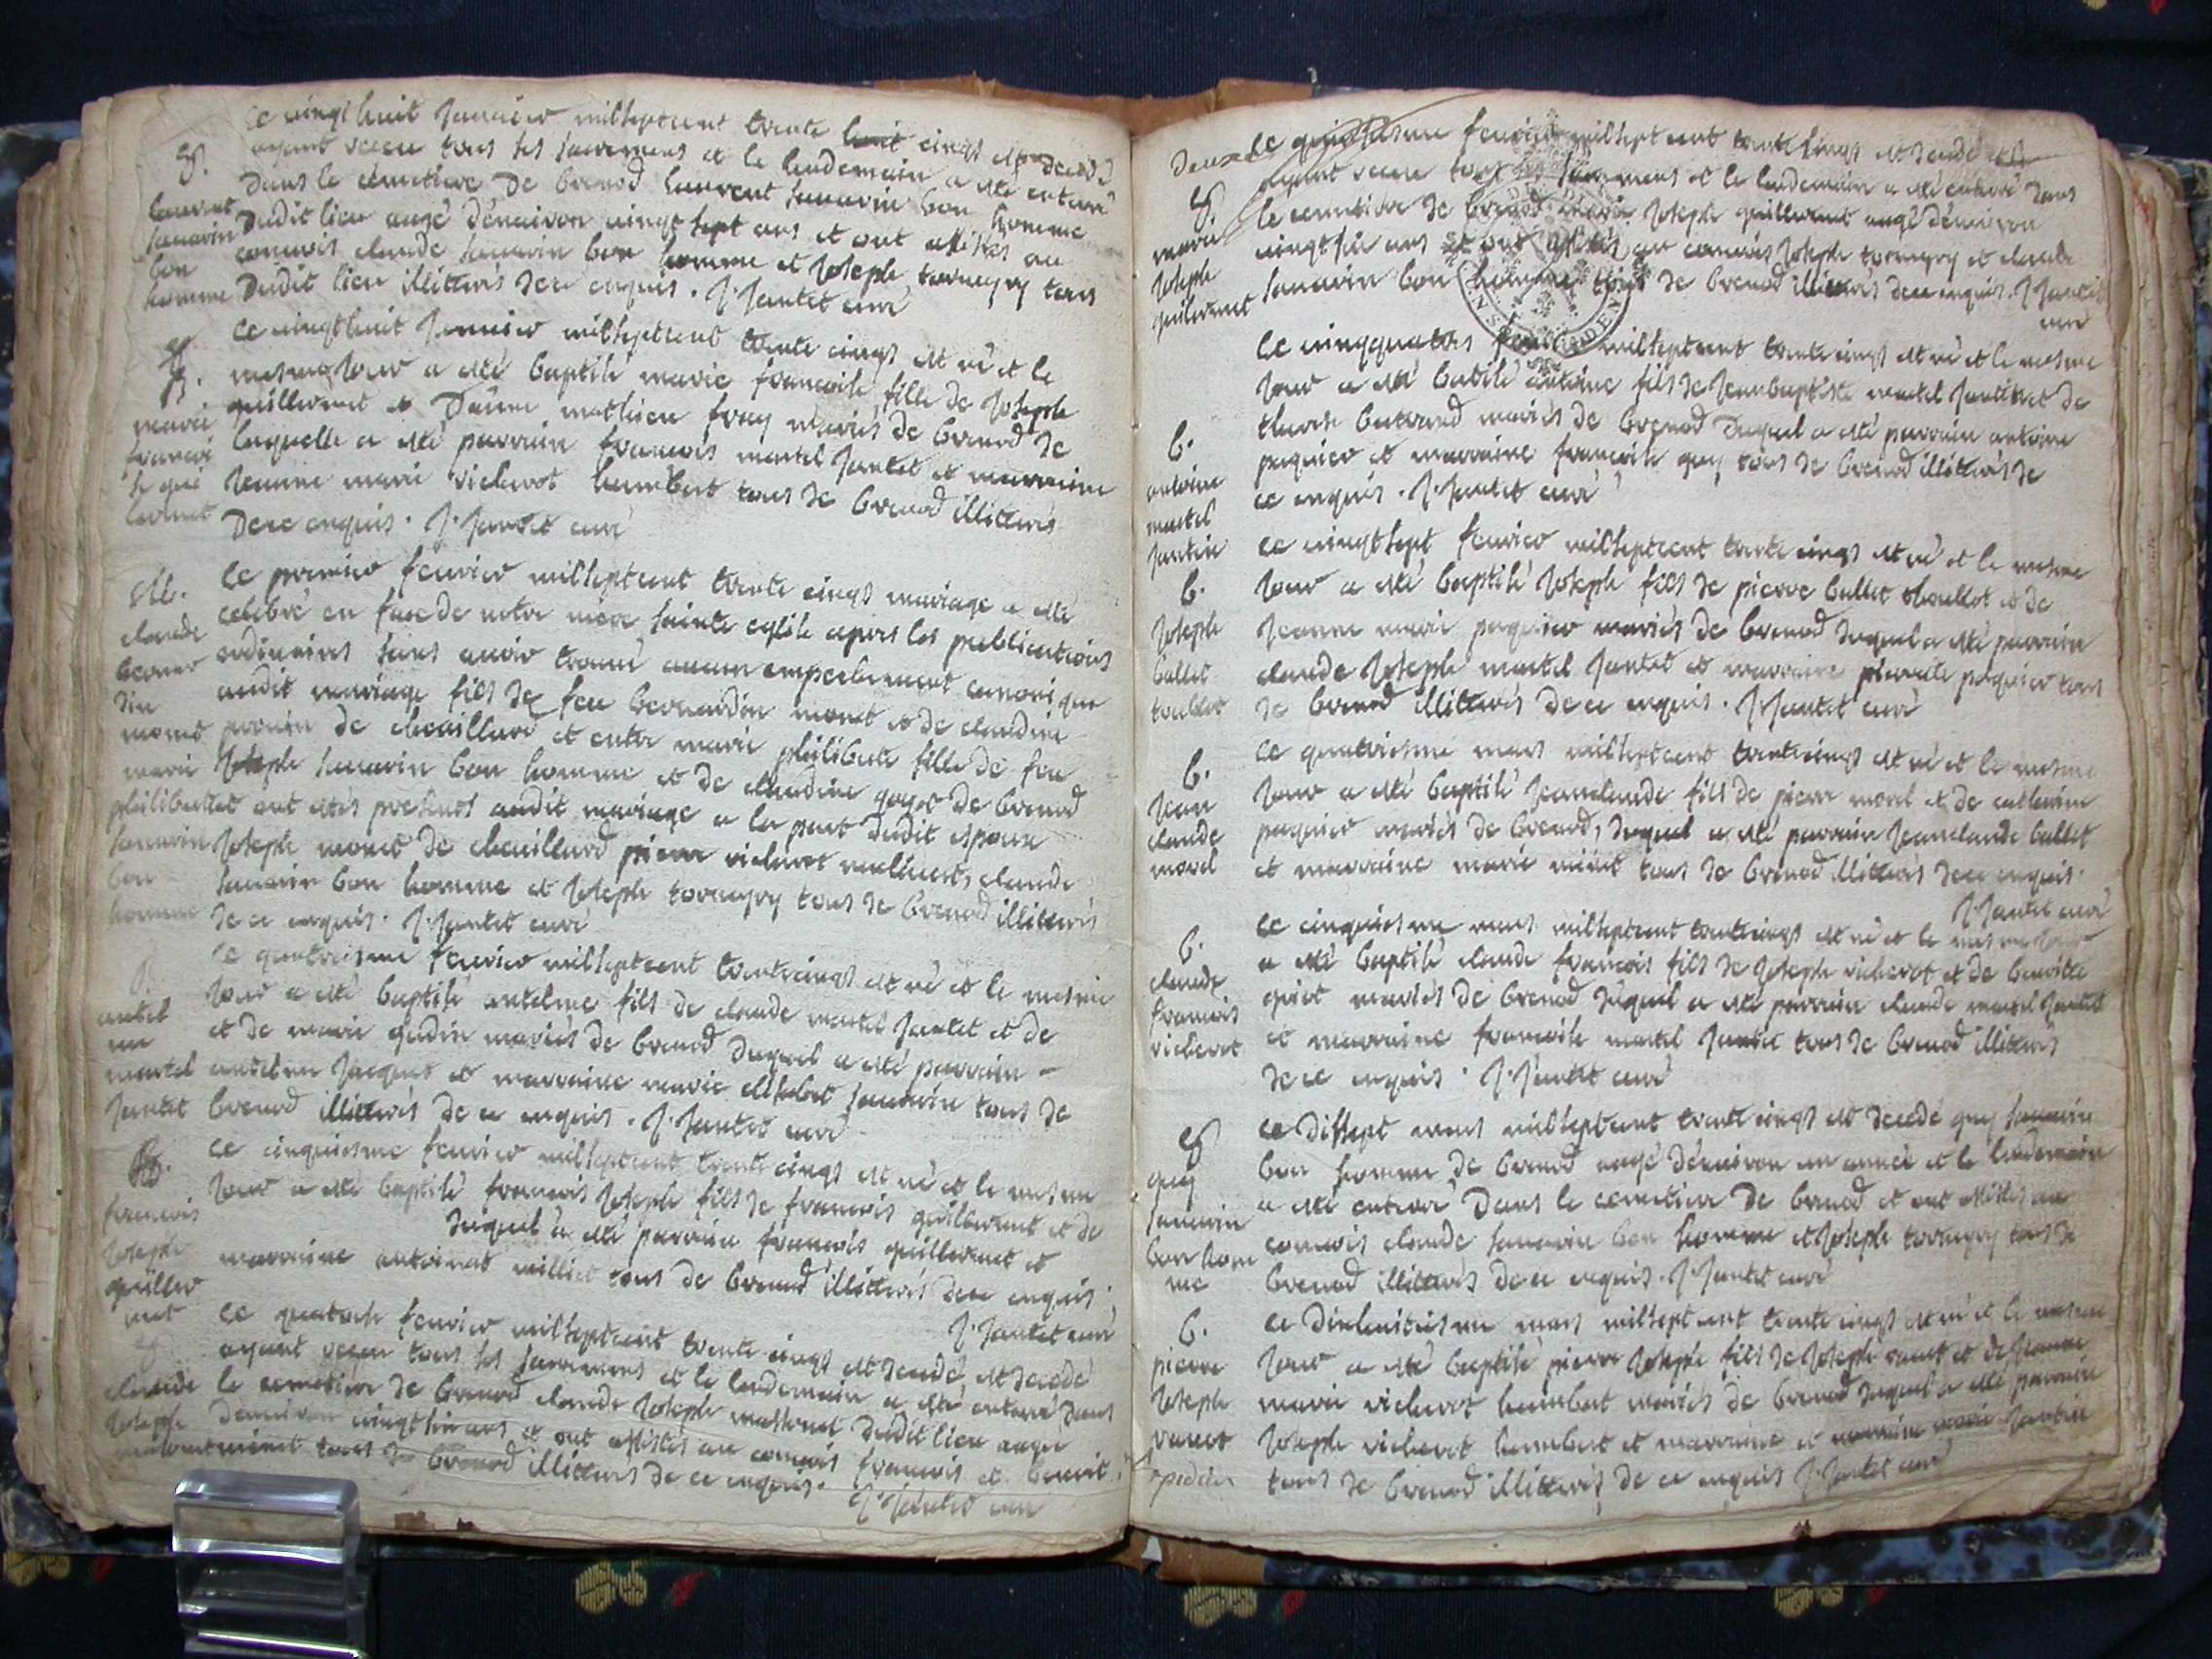 le vingt huit janvier mil sept cent trente huit cinq est decedé
ayant receu tous ses sacremens et le lendemain a esté enterré
dans le cemetiere de brenod laurent sauarin bon homme
dudit lieu aagé d'enuiron vingt sept ans et ont assistés au
conuois claude sauarin bon homme et joseph torneyry tous
dudit lieu illitterés de ce enquis. J. Jantet curé
S.
laurent
sauarin
bon
homme
le vingt huit janvier mil sept cent trente cinq est né et le
mesme jour a esté baptisé marie francoise fille de joseph
guillermet et mathieu mariés de brenod de
laquelle a esté parrain francois martel jantet et marraine
jeanne marie vichevot humbert tous de brenod illitterés
de ce enquis. J. Jantet curé
B.
marie
francoi
se gui
lermet
le premier feurier mil sept cent trente cinq mariage a esté
celebré en face de notre mere sainte eglise apres les publications
ordinaires sans auoir trouué aucun empechement canonique
audit mariage fils de feu bernardin monet et de claudine
perrin de cheuillard et entre marie philiberte fille de feu
joseph sauarin bon homme et de claudine goyet de brenod
et ont estés presents audit mariage a la part dudit espoux
joseph monet de cheuillard pierre vichevot claude
sauarin bon homme et joseph torneyry tous de brenod illitterés
de ce enquis. J. Jantet curé
M.
claude
bernar
din
monet
marie
philiberte
sauarin
bon
homme
le quatriesme feurier mil sept cent trente cinq est né et le mesme
jour a esté baptisé antelme fils de claude martel jantet et de
et de marie gudin mariés de brenod duquel a esté parrain
antelme jacquet et marraine marie elisabet sauarin tous de
brenod illitterés de ce enquis. J. Jantet curé
B.
antel
me
martel
jantet
le cinquiesme feurier mil sept cent trente cinq est né et le mesme
jour a esté baptisé francois joseph fils de francois guillermet et de
duquel a esté parrain francois guillermet et
marraine antoinat milliet tous de brenod illitterés de ce enquis.
J. Jantet curé
B.
francois
joseph
guiller
met
le quatorse feurier mil sept cent trente cinq est decedé est decedé
ayant receu tous ses sacremens et le lendemain a esté enterré dans
le cemetiere de brenod claude joseph dudit lieu aagé
denuiron vingt six ans et ont assistés au conuois francois et benoit
tous de brenod illitterés de ce enquis.
J. Jantet curé
S.
claude
joseph
le feurier mil sept cent trente cinq est decedé
ayant receu tous ses sacremens et le lendemain a esté enterré dans
le cemetiere de brenod marie joseph guillermet aagé denuiron
vingt six ans et ont assistés au conuois joseph torneyry et claude
sauarin bon homme tous de brenod illitterés de ce enquis. J. Jantet
curé
S.
marie
joseph
guilermet
le vingquatre feurier mil sept cent trente cinq est né et le mesme
jour a esté batisé antoine fils de jean baptiste martel jantin et de
therese butavand mariés de brenod duquel a esté parrain antoine
paquier et marraine francoise guy tous de brenod illitterés de
ce enquis. J. Jantet curé
b.
antoine
martel
jantin
le vingt sept feurier mil sept cent trente cinq est né et le mesme
jour a esté baptisé joseph fils de pierre ballet et de
jeanne marie paquier mariés de brenod duquel a esté parrain
claude joseph martel jantet et marraine pierrette paquier tous
de brenod illitterés de ce enquis. J. Jantet curé
b.
joseph
ballet
le quatriesme mars mil sept cent trente cinq est né et le mesme
jour a esté baptisé jean claude fils de pierre morel et de catherine
paquier mariés de brenod, duquel a esté parrain jean claude ballet
et marraine marie tous de brenod illitterés de ce enquis.
J. Jantet curé
b.
jean
claude
morel
le cinquiesme mars mil sept cent trente cinq est né et le mesme jour
a esté baptisé claude francois fils de joseph vichevot et de
mariés de brenod duquel a esté parrain claude martel jantet
et marraine francoise martel jantet tous de brenod illitterés
de ce enquis. J. Jantet curé
b.
claude
francois
vichevot
le dissept mars mil sept cent trente cinq est decedé guy sauarin
bon homme de brenod aagé denuiron un année et le lendemain
a esté enterré dans le cemetiere de brenod et ont assistés au
conuois claude sauarin bon homme et joseph torneyry tous de
brenod illitterés de ce enquis. J. Jantet curé
S
guy
sauarin
bon hom
me
le dixhuitiesme mars mil sept cent trente cinq est né et le mesme
jour a esté baptisé pierre joseph fils de joseph et de jeanne
marie vichevot humbert mariés de brenod duquel a esté parrain
joseph vichevot humbert et marraine et
tous de brenod illitterés de ce enquis J. Jantet curé
b.
pierre
joseph